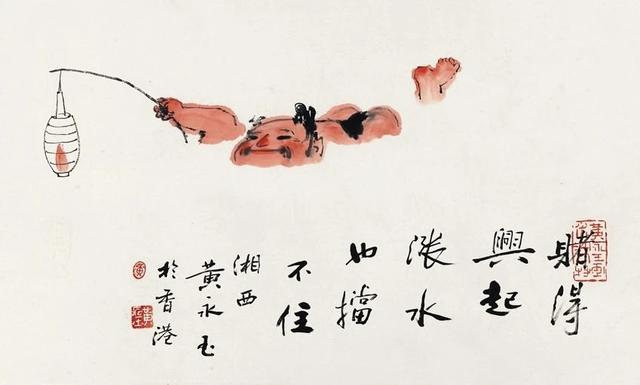 賭得
興起
漲水
也擋
不住
湘西
黄永玉
於香港